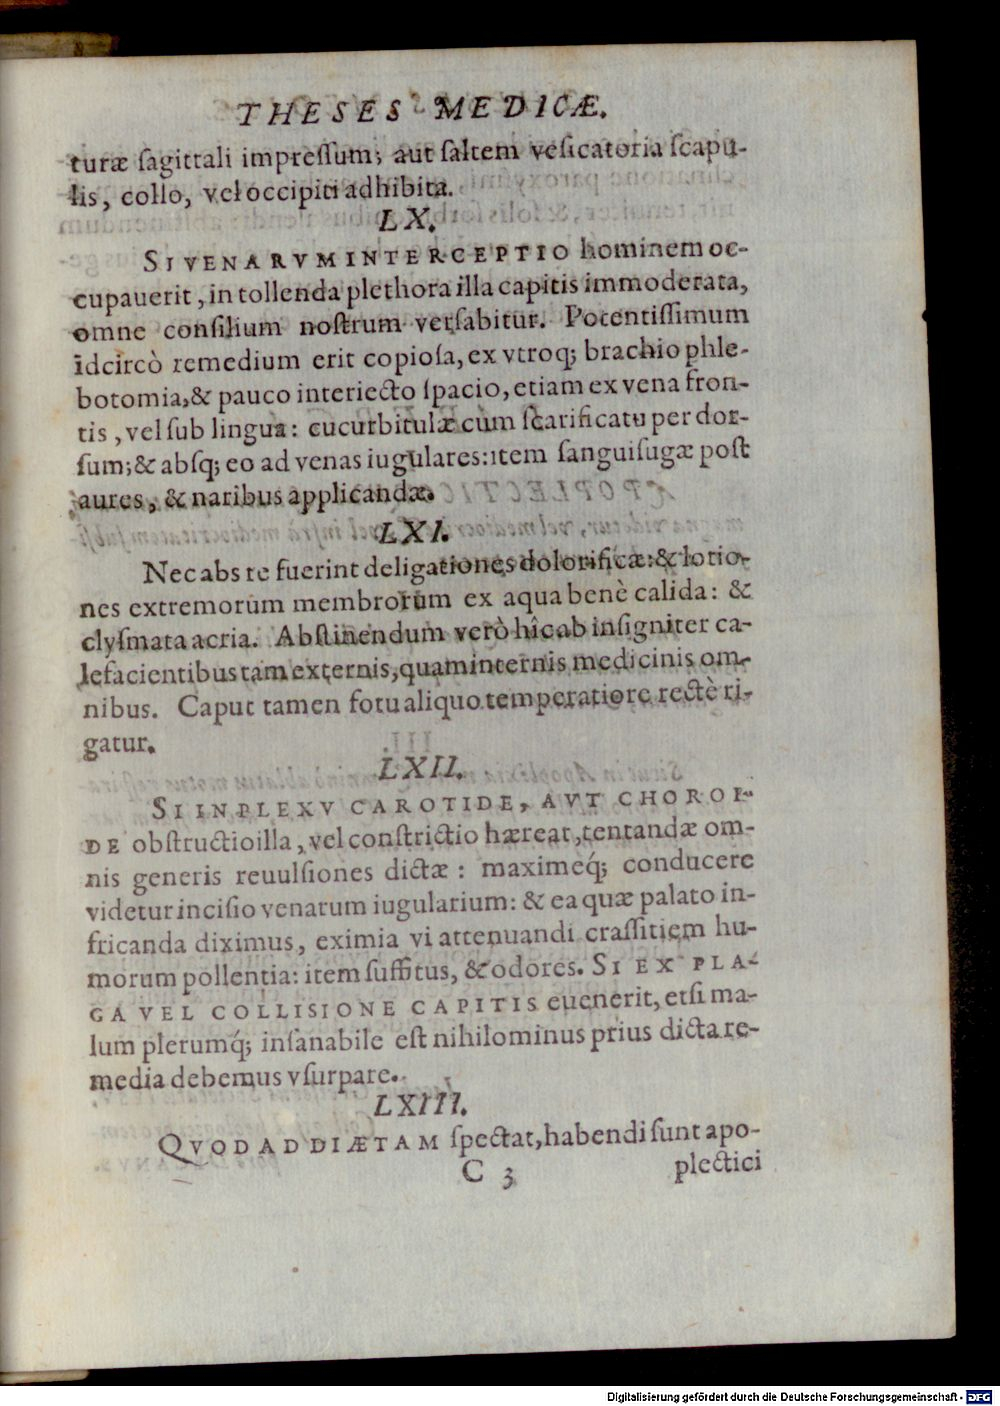 THESES MEDICÆ.
turæ sagittali impressum; aut saltem vesicatoria scapu-
lis, collo, vel occipiti adhibita.
LX.
SI VENARVM INTERCEPTIO hominem oc-
cupauerit, in tollenda plethora illa capitis immoderata,
omne consilium nostrum versabitur. Potentissimum
idcircò remedium erit copiosa, ex vtroq; brachio phle-
botomia, & pauco interiecto spacio, etiam ex vena fron-
tis, vel sub lingua: cucurbitulæ cum scarificatu per dor-
sum; & absq; eo ad venas iugulares: item sanguisugæ post
aures, & naribus applicandæ.
LXI.
Nec abs re fuerint deligationes dolorificæ: & lotio-
nes extremorum membrorum ex aqua benè calida: &
clysmata acria. Abstinendum verò hîc ab insigniter ca-
lefacientibus tam externis, quam internis medicinis om-
nibus. Caput tamen fotu aliquo temperatiore rectè ri-
gatur.
LXII.
SI IN PLEXV CAROTIDE, AVT CHOROI-
DE obstructio illa, vel constrictio hæreat, tentandæ om-
nis generis reuulsiones dictæ: maximeq́; conducere
videtur incisio venarum iugularium: & ea quæ palato in-
fricanda diximus, eximia vi attenuandi crassitiem hu-
morum pollentia: item suffitus, & odores. SI EX PLA-
GA VEL COLLISIONE CAPITIS euenerit, etsi ma-
lum plerumq́; insanabile est nihilominus prius dicta re-
media debemus vsurpare.
LXIII.
QVOD AD DIÆTAM spectat, habendi sunt apo-
C 3 plectici
Digitalisierung gefördert durch die Deutsche Forschungsgemeinschaft - DFG